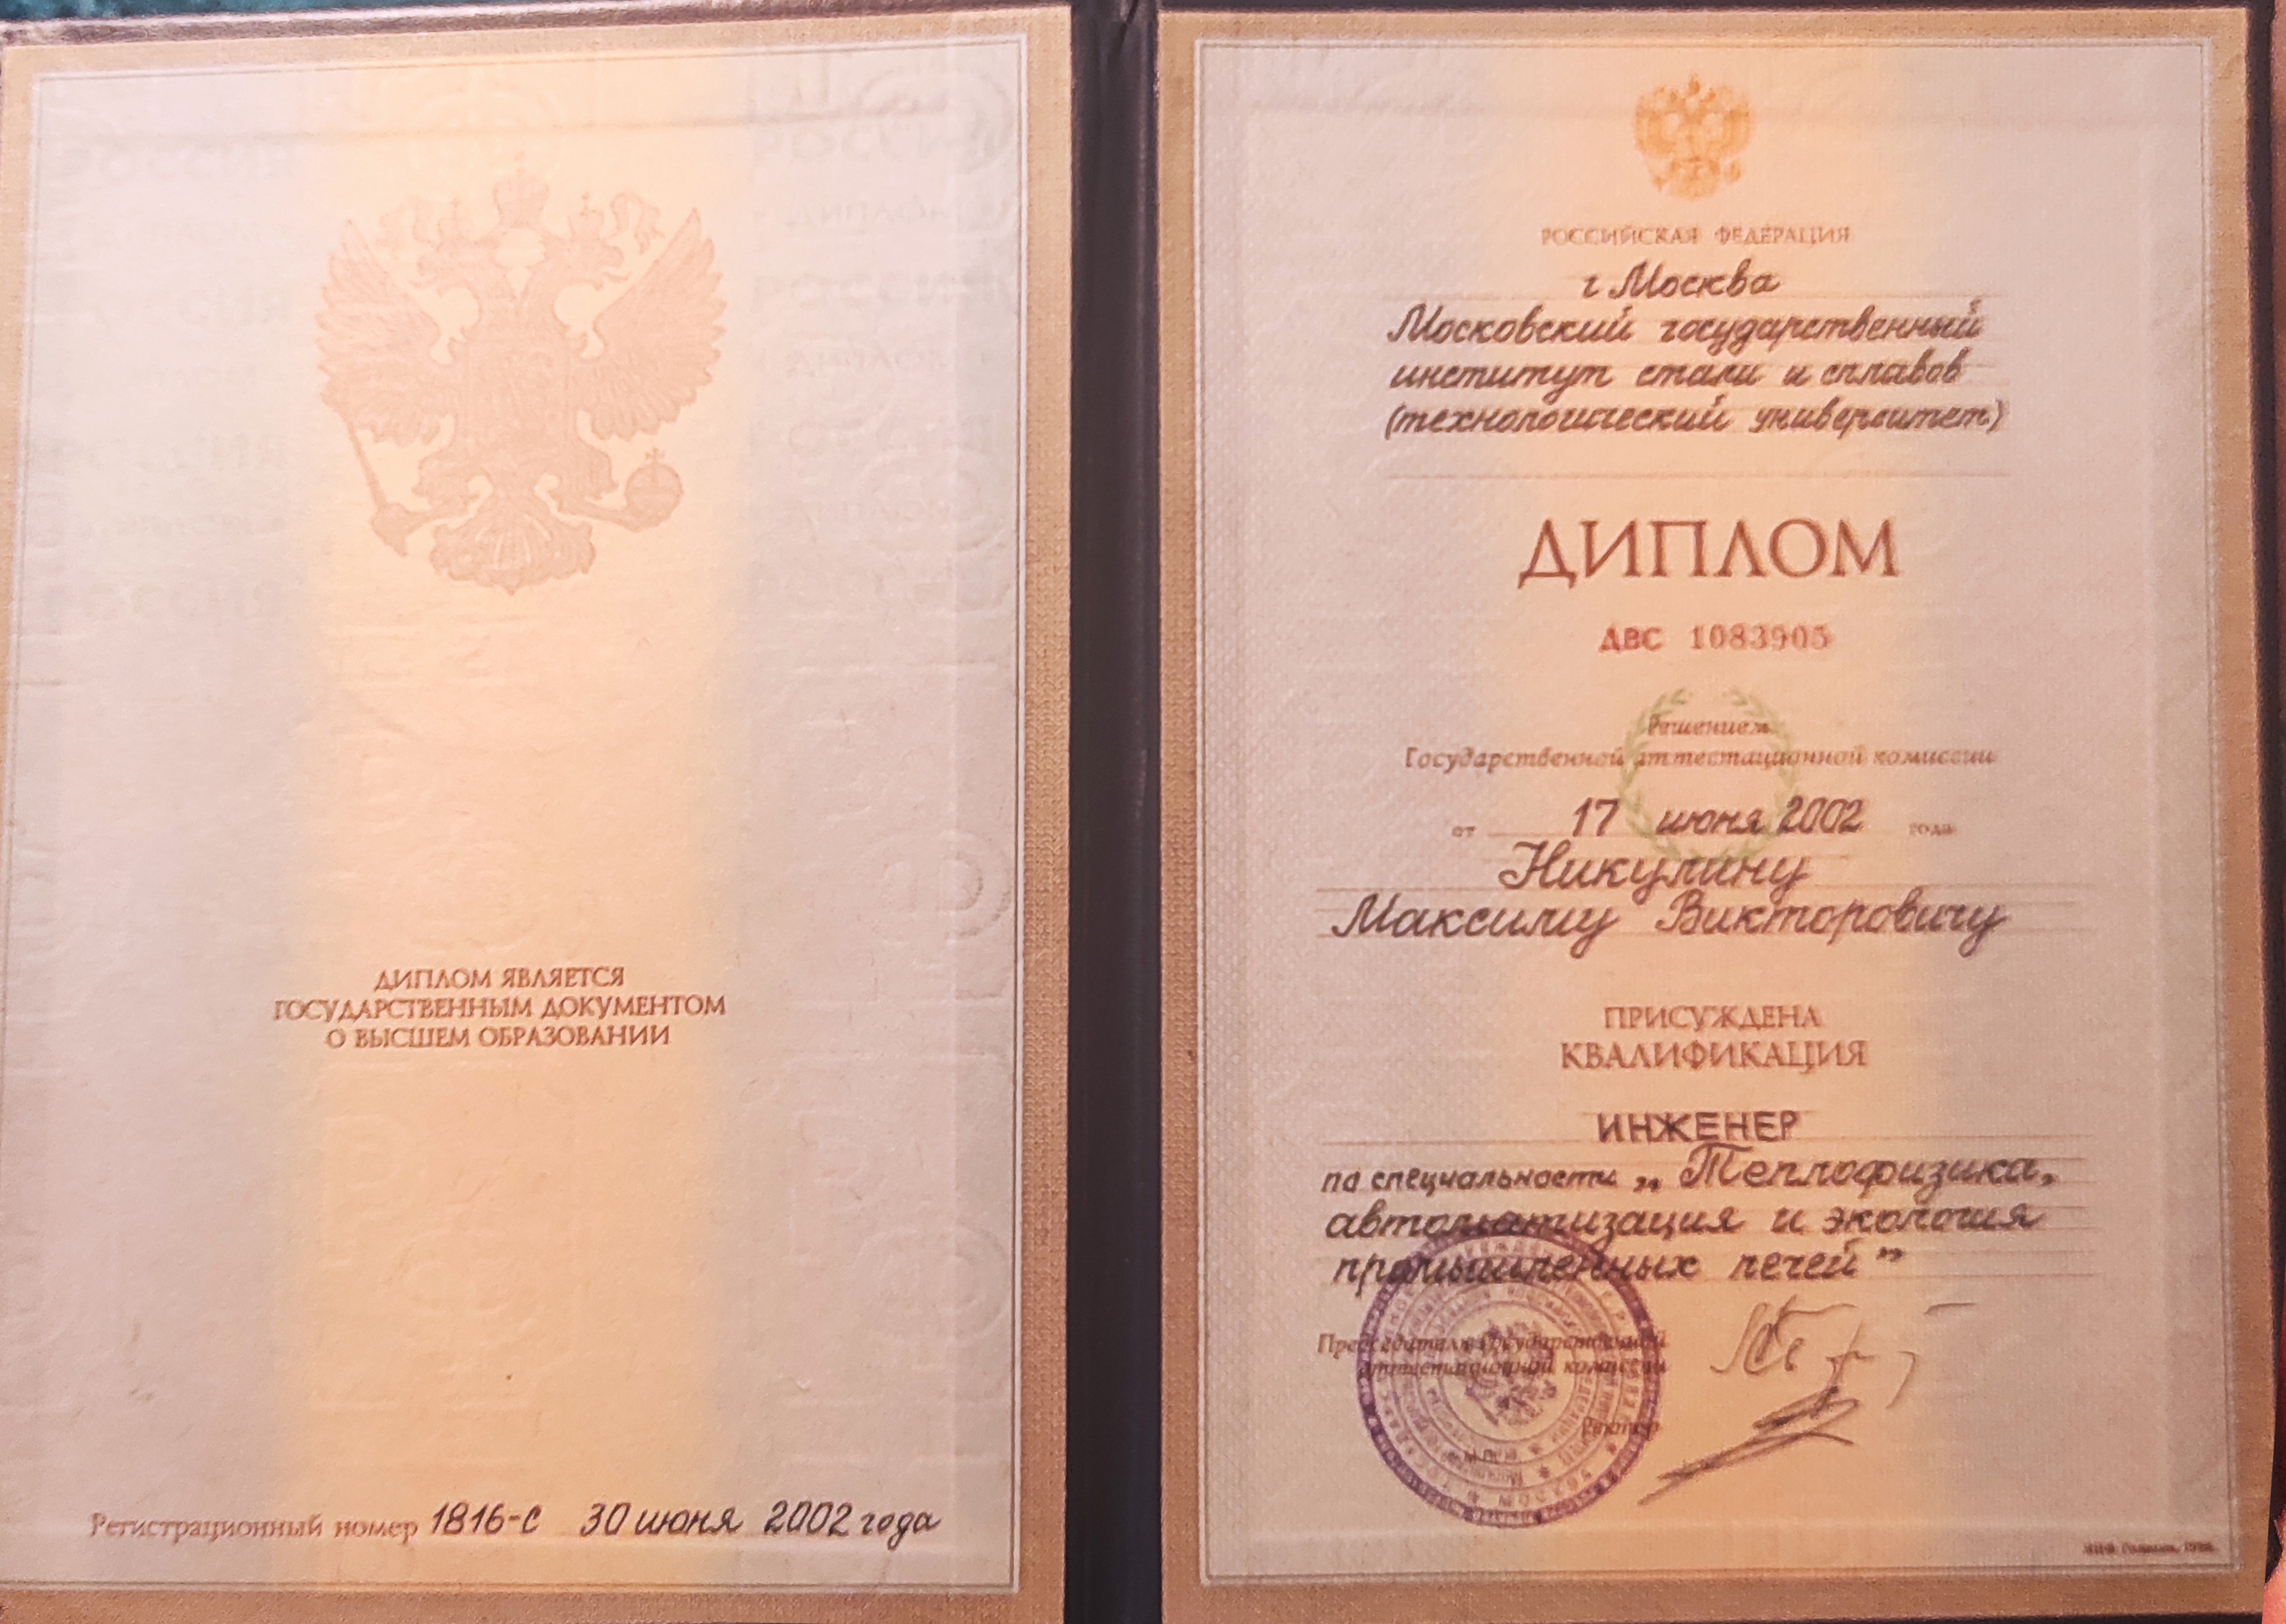 ДИПЛОМ ЯВЛЯЕТСЯ
ГОСУДАРСТВЕННЫМ ДОКУМЕНТОМ
О ВЫСШЕМ ОБРАЗОВАНИИ
Регистрационный номер 1816-С 30 июня 2002 года
РОССИЙСКАЯ ФЕДЕРАЦИЯ
г Москва
Московский государственный
институт стали и сплавов
(технологический университет)
ДИПЛОМ
ДВС 1083905
Решением
Государственной аттестационной комиссии
от 17 июня 2002 года
Никулину
Максиму Викторовичу
ПРИСУЖДЕНА
КВАЛИФИКАЦИЯ
ИНЖЕНЕР
по специальности „Теплофизика,
автоматизация и экология
промышленных печей”
Председатель Государственной
аттестационной комиссии
Ректор